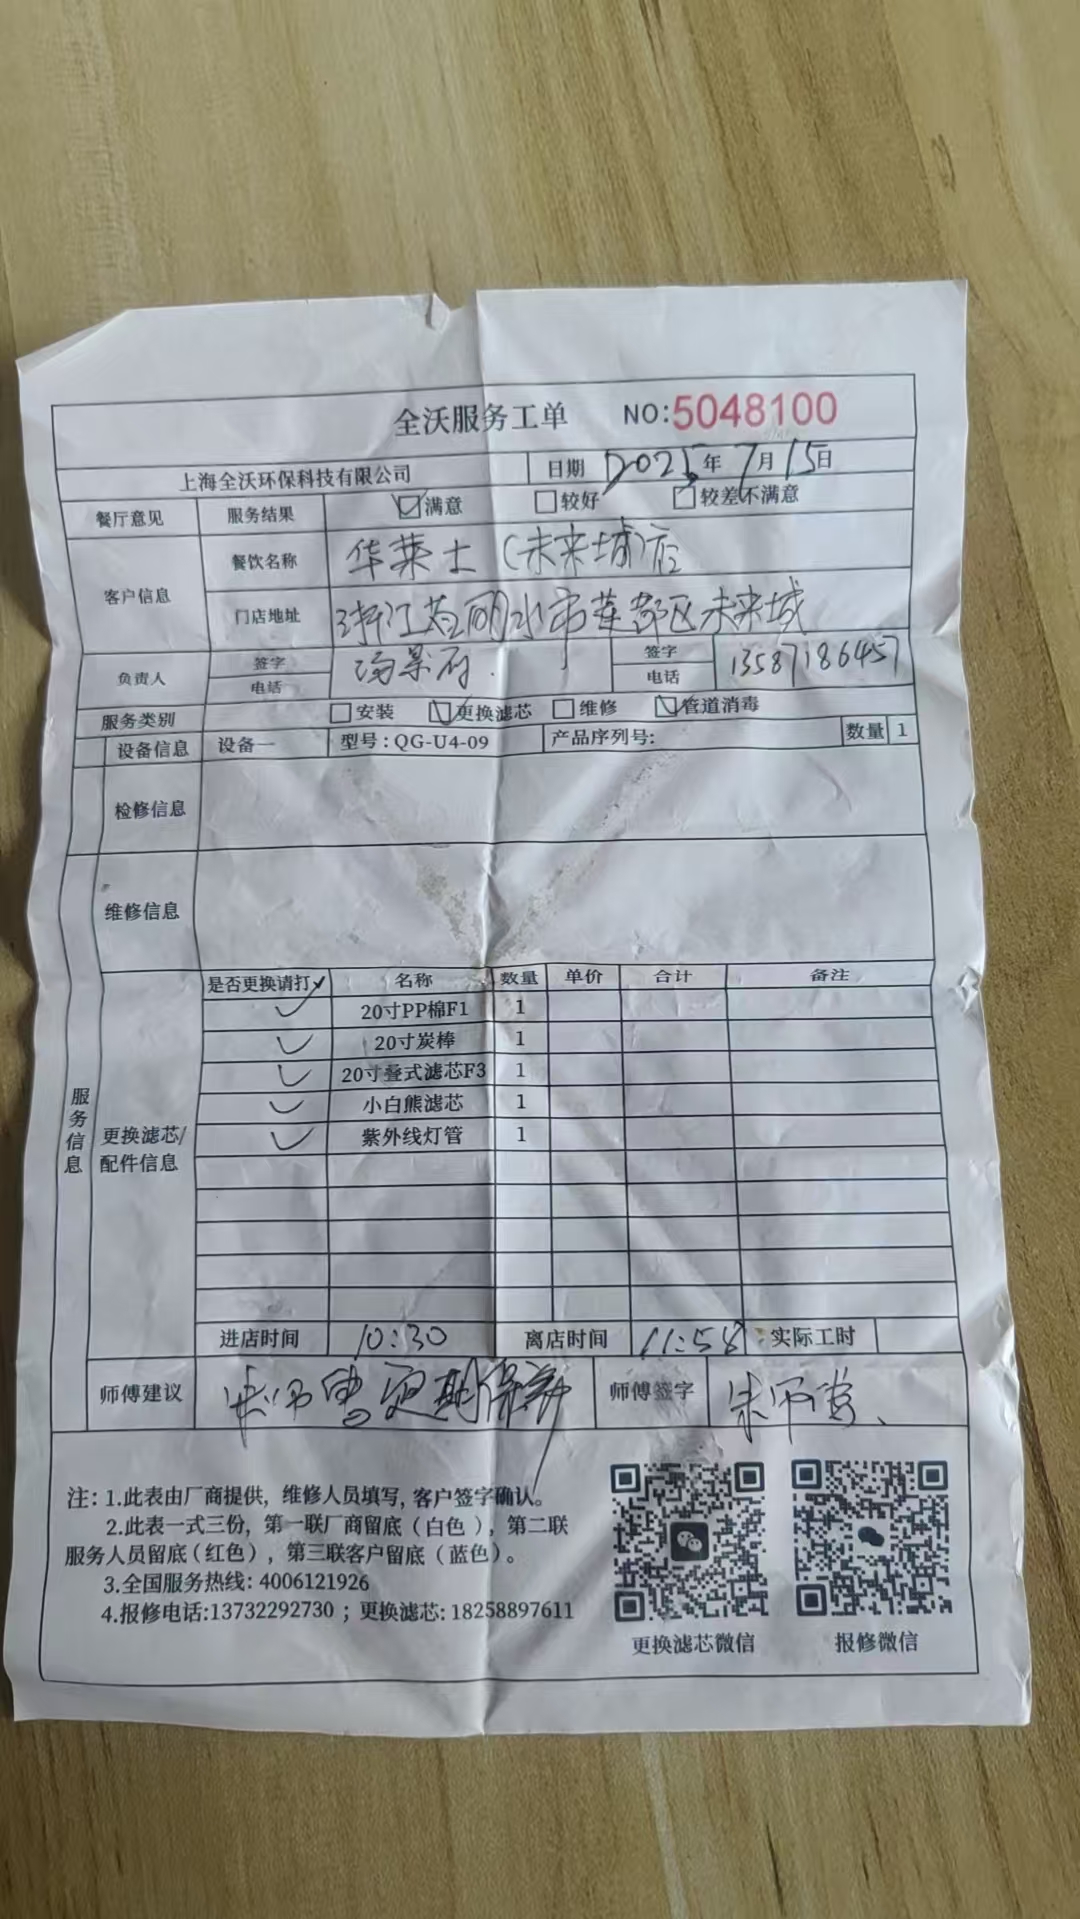 全沃服务工单 NO:5048100
上海全沃环保科技有限公司 日期 2025年7月15日
餐厅意见 服务结果 ☑满意 □较好 □较差不满意
客户信息 餐饮名称 华莱士（未来城）店
门店地址 浙江省丽水市莲都区未来城
负责人 签字 电话 签字 电话 13587186457
服务类别 □安装 ☑更换滤芯 □维修 ☑管道消毒
设备信息 设备一 型号：QG-U4-09 产品序列号: 数量 1
检修信息
维修信息
服务信息
更换滤芯/配件信息
是否更换请打✓ 名称 数量 单价 合计 备注
✓ 20寸PP棉F1 1
✓ 20寸炭棒 1
✓ 20寸叠式滤芯F3 1
✓ 小白熊滤芯 1
✓ 紫外线灯管 1
进店时间 10:30 离店时间 11:58 实际工时
师傅建议 师傅签字
注：1.此表由厂商提供，维修人员填写，客户签字确认。
2.此表一式三份，第一联厂商留底（白色），第二联
服务人员留底（红色），第三联客户留底（蓝色）。
3.全国服务热线: 4006121926
4.报修电话:13732292730；更换滤芯: 18258897611
更换滤芯微信 报修微信